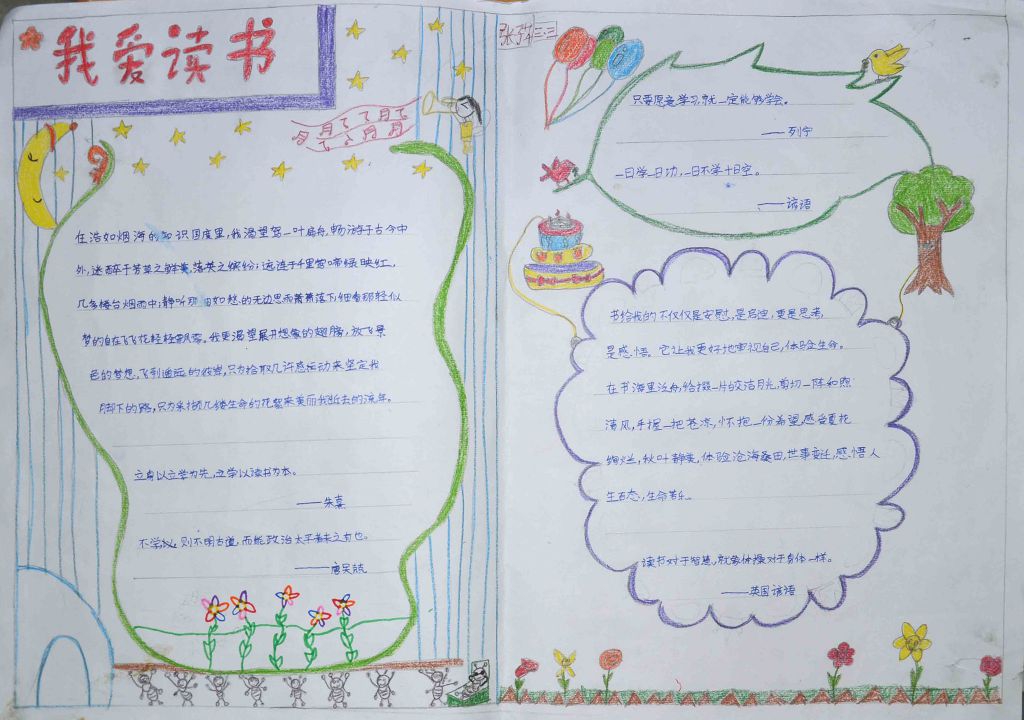 我爱读书
在浩如烟海的知识国度里,我渴望驾一叶扁舟,畅游于古今中
外,迷醉于芳草之鲜美,落英之缤纷;流连于千里莺啼绿映红,
几多楼台烟雨中;静听那如愁的无边思雨萧萧落下,细看那轻似
梦的自在飞花轻轻飘零。我更渴望展开想像的翅膀,放飞景
色的梦想,飞到遥远的彼岸,只为拾取几许感动来坚定我
脚下的路,只为采撷几缕生命的花絮来美丽我逝去的流年。
立身以立学为先,立学以读书为本。
——朱熹
不学,则不明古道,而能政治太平者未之有也。
——唐吴兢
张
三.三
只要愿意学习,就一定能够学会。
——列宁
一日学一日功,一日不学十日空。
——谚语
书给我的不仅仅是安慰,是启迪,更是思考,
是感悟。它让我更好地审视自己,体验生命。
在书海里泛舟,给掇一片皎洁月光,剪切一阵和煦
清风,手握一把苍凉,怀抱一份希望,感受夏花
绚烂,秋叶静美,体验沧海桑田,世事变迁,感悟人
生百态,生命苦乐。
读书对于智慧,就象体操对于身体一样。
——英国谚语